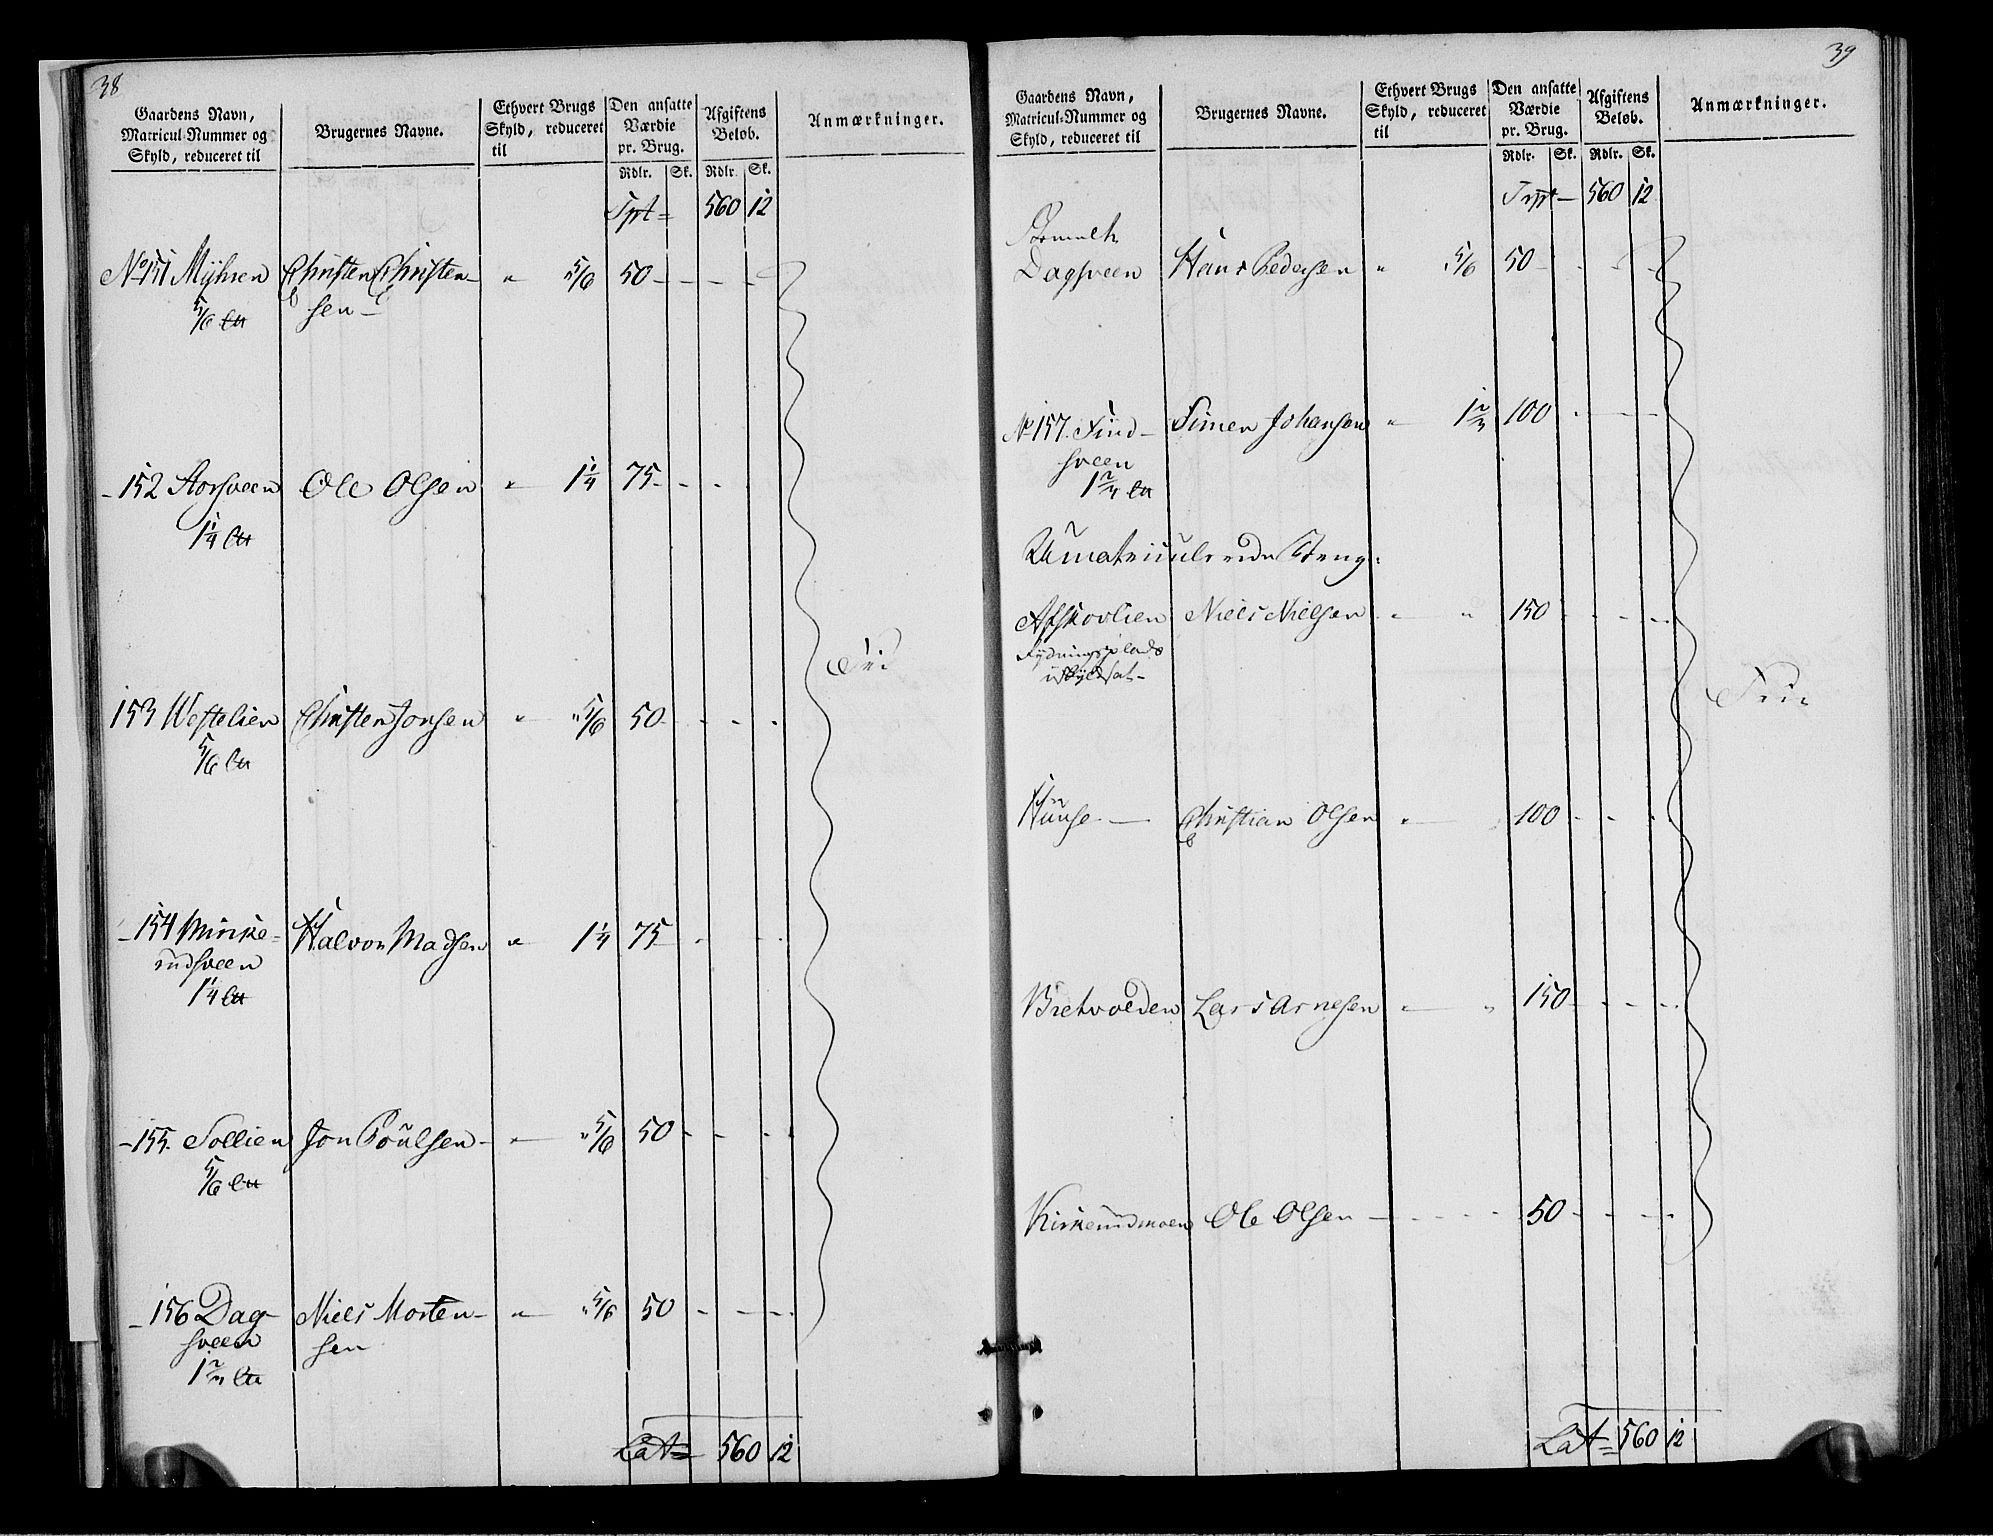 38
Gaardens Navn, Matricul-Nummer og Skyld, reduceret til
Brugernes Navne.
Ethvert Brugs Skyld, reduceret til
Den ansatte Værdie pr. Brug.
Afgiftens Beløb.
Anmærkninger.
Rdlr. Sk. Rdlr. Sk.
Tpt = 560 12
No 151 Myhren Christen Christen- " 5/6 50 - - - -
5/6 sen -
- 152 Aorsveen Ole Olsen " 1 1/4 75 - - -
1 1/4
Frie
153 Westelien Christen Jonsen " " 5/6 50 - - - -
5/6
- 154 Minike= Halvor Madsen " 1 1/4 75 - -
rudsveen
1 1/4
- 155. Sollien Jon Poulsen - " " 5/6 50 - - - -
5/6
- 156 Dag- Niels Morten- " " 5/6 50 - - - -
sveen sen
1 2/3
Lat = 560 12
39
Gaardens Navn, Matricul-Nummer og Skyld, reduceret til
Brugernes Navne.
Ethvert Brugs Skyld, reduceret til
Den ansatte Værdie pr. Brug.
Afgiftens Beløb.
Anmærkninger.
Rdlr. Sk. Rdlr. Sk.
Trpt - 560 12
Dagsveen Hans Pedersen " 5/6 50 - - - -
No 157. Find- Simen Johansen " 1 2/3 100 - - - -
sveen
1 2/3
Umatriculerede Steng:
Afskovlien Niels Nielsen " " 150 - - - -
Rydningsplads
uskyldsat -
Frie
Huuse - Christian Olsen " 100 - - -
Bretvolden Lars Arnesen " " 150 - - - -
Kirkerudmoen Ole Olsen - - - - 50 - - - -
Lat = 560 12